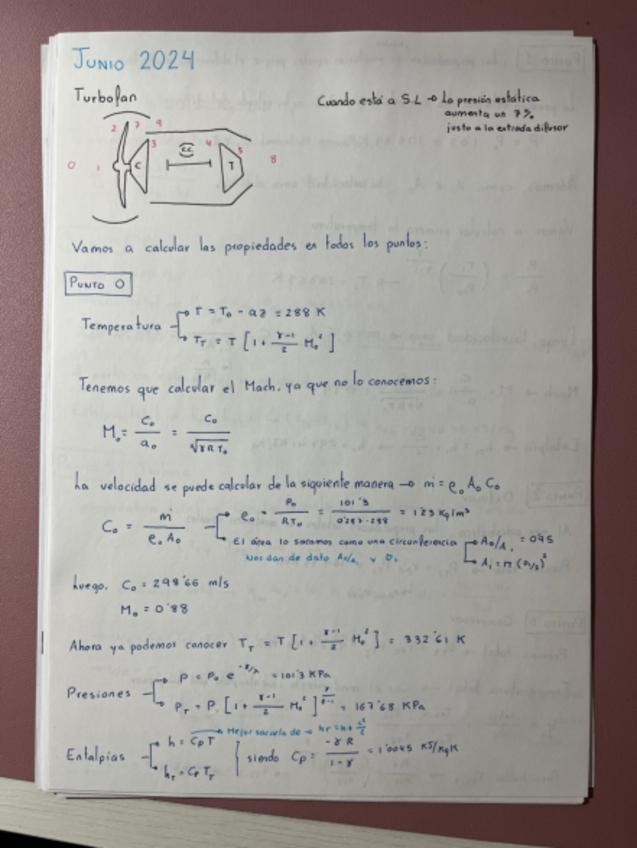 JUNIO 2024
Turbofan
Cuando está a S.L → La presión estática
aumenta un 7%
justo a la entrada difusor
0 1 2 7 9 3 4 5 8
C CC T
Vamos a calcular las propiedades en todos los puntos:
PUNTO 0
Temperatura
T = T₀ - az = 288 K
T_T = T [1 + (γ-1)/2 M₀²]
Tenemos que calcular el Mach, ya que no lo conocemos:
M₀ = C₀/a₀ = C₀/√(γRT₀)
La velocidad se puede calcular de la siguiente manera → ṁ = ρ₀ A₀ C₀
C₀ = ṁ/(ρ₀A₀)
ρ₀ = P₀/(RT₀) = 101'3/(0'287·288) = 1'23 Kg/m³
El área lo sacamos como una circunferencia
A₀/A₁ = 0'95
Nos dan de dato A₀/A₁ y D₁
A₁ = π (D₁/2)²
Luego, C₀ = 298'66 m/s
M₀ = 0'88
Ahora ya podemos conocer T_T = T [1 + (γ-1)/2 M₀²] = 332'61 K
Presiones
P = P₀ e = 101'3 KPa
P_T = P [1 + (γ-1)/2 M₀²]^(γ/(γ-1)) = 167'68 KPa
Mejor sacarla de → h_T = h + C²/2
Entalpías
h = CpT
h_T = Cp T_T
siendo Cp = -γR/(1-γ) = 1'0045 KJ/KgK